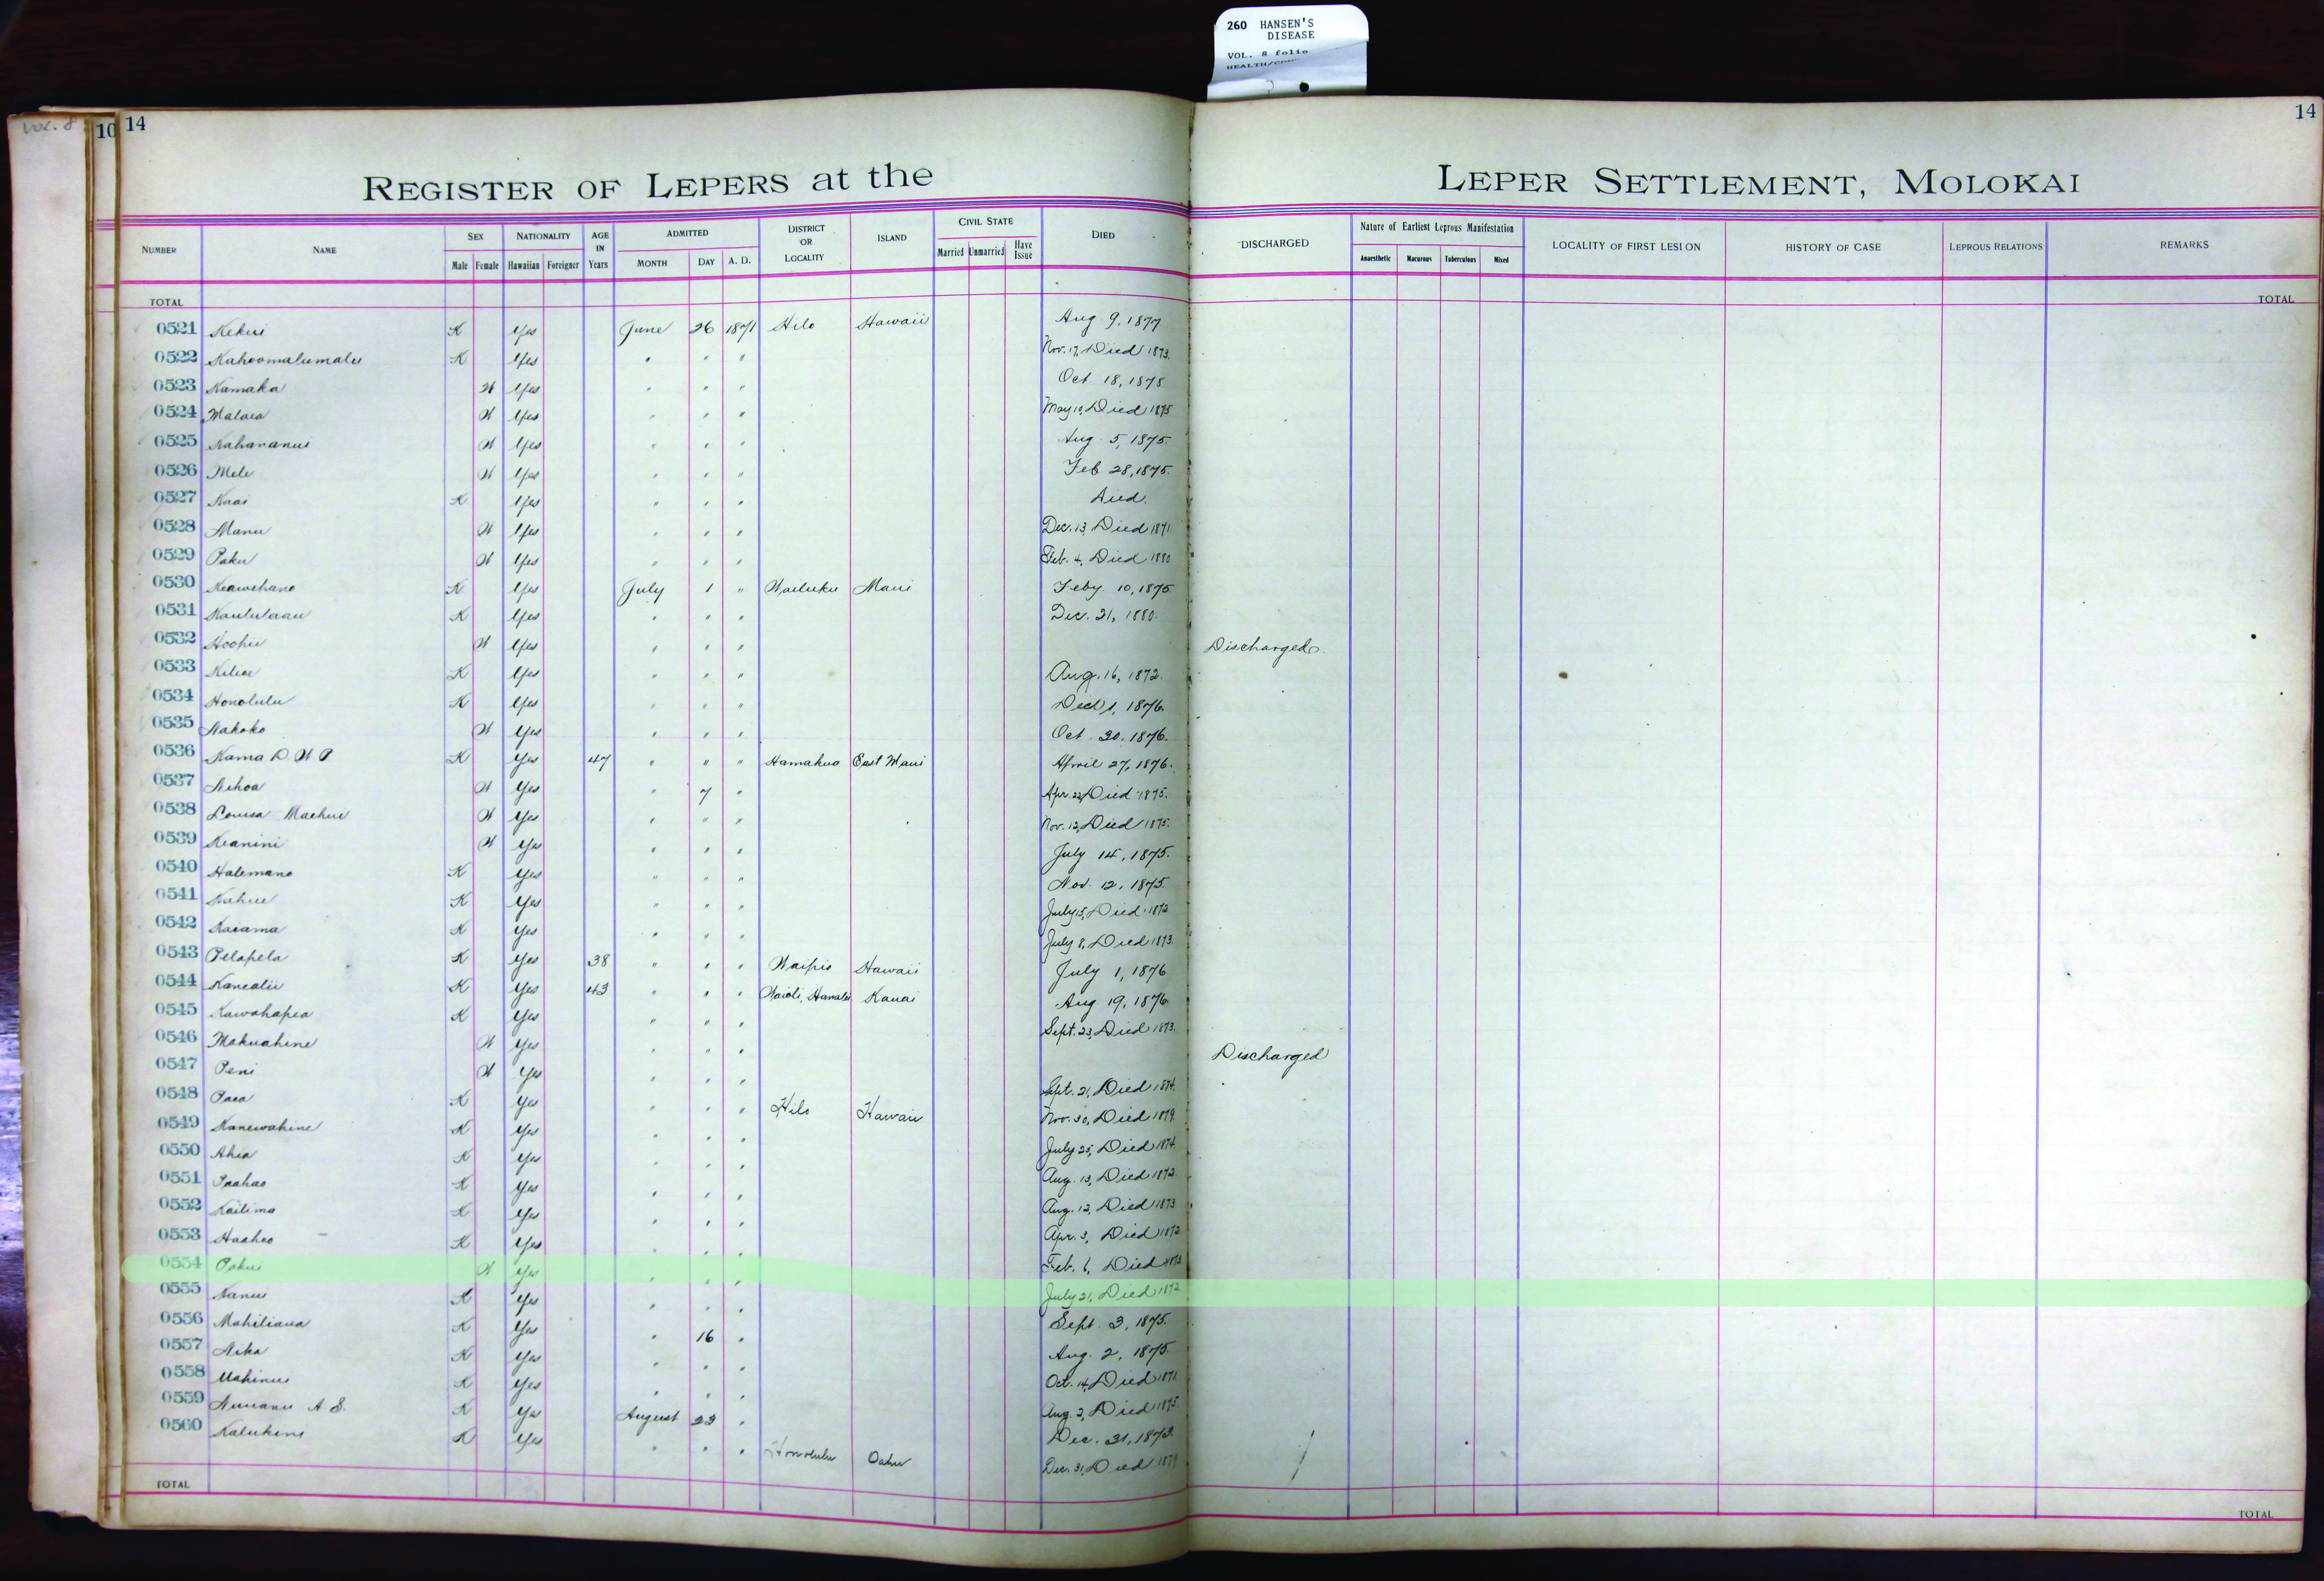 260 HANSEN'S
DISEASE
VOL. 8 folio
VOL. 8
10 14
14
REGISTER OF LEPERS at the LEPER SETTLEMENT, MOLOKAI
NUMBER NAME SEX NATIONALITY AGE IN Years ADMITTED DISTRICT OR LOCALITY ISLAND CIVIL STATE DIED DISCHARGED Nature of Earliest Leprous Manifestation LOCALITY OF FIRST LESION HISTORY OF CASE LEPROUS RELATIONS REMARKS
Male Female Hawaiian Foreigner MONTH DAY A. D. Married Unmarried Have Issue Anaesthetic Macurous Tuberculous Mixed
TOTAL TOTAL
0521 Kekui K Yes June 26 1871 Hilo Hawaii Aug 9, 1877
0522 Kahoomalumalu K Yes " " " Nov. 17, Died 1873.
0523 Kamaka W Yes " " " Oct 18, 1875
0524 Malaea W Yes " " " May 10, Died 1875
0525 Kahananui W Yes " " " Aug. 5, 1875.
0526 Mele W Yes " " " Feb 28, 1875.
0527 Kaai K Yes " " " Died.
0528 Manu W Yes " " " Dec. 13, Died 1871
0529 Paku W Yes " " " Feb. 4, Died 1880
0530 Keawehano K Yes July 1 " Wailuku Maui Feby 10, 1875
0531 Kaululaau K Yes " " " Dec. 21, 1880.
0532 Hoohii W Yes " " " Discharged.
0533 Kiliae K Yes " " " Aug. 16, 1872.
0534 Honolulu K Yes " " " 1, 1876.
0535 Nakoko W Yes " " " Oct 20, 1876.
0536 Kama D. W P K Yes 47 " " " Hamakua East Maui April 27, 1876.
0537 Nihoa W Yes " 7 " Apr. 22, Died 1875.
0538 Louisa Maehui W Yes " " " Nov. 12, Died 1875.
0539 Keanini W Yes " " " July 14, 1875.
0540 Halemano K Yes " " " Nov. 12, 1875.
0541 Kahue K Yes " " " July 15, Died 1872
0542 Kaiama K Yes " " " July 8, Died 1873.
0543 Pelapela K Yes 38 " " " Waipio Hawaii July 1, 1876
0544 Kanealii K Yes 43 " " " Waioli, Hanalei Kauai Aug 19, 1876
0545 Kawahapea K Yes " " " Sept. 23, Died 1873.
0546 Makuahine W Yes " " " Discharged
0547 Peni W Yes " " " Sept. 21, Died 1874.
0548 Paea K Yes " " " Hilo Hawaii Nov. 30, Died 1879.
0549 Kanewahine K Yes " " " July 25, Died 1874.
0550 Ahia K Yes " " " Aug. 13, Died 1872.
0551 Paahao K Yes " " " Aug. 12, Died 1873
0552 Kailima K Yes " " " Apr. 3, Died 1872
0553 Haaheo K Yes " " " Feb. 6, Died 1873
0554 Pakui W Yes " " " July 21, Died 1872
0555 Nanui K Yes " " " Sept. 3, 1875.
0556 Mahiliana K Yes " 16 " Aug. 2, 1875.
0557 Nika K Yes " " " Oct. 14, Died 1871.
0558 Mahinui K Yes " " " Aug. 2, Died 1875.
0559 Nuuanu A S. K Yes August 23 " Dec. 31, 1873.
0560 Kalukini K Yes " " " Honolulu Oahu Dec. 31, Died 1879
TOTAL TOTAL